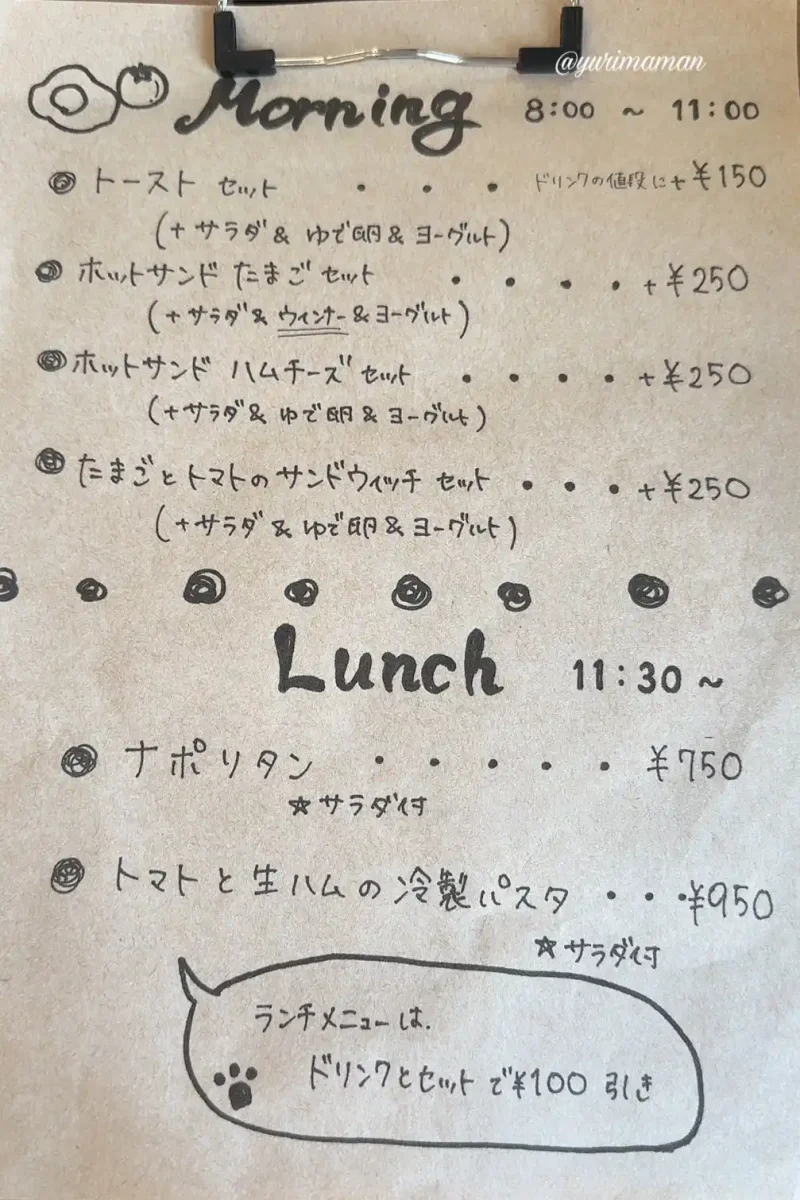 @yurimaman
Morning 8:00 ~ 11:00
トースト セット ・ ・ ・ ドリンクの値段に+¥150
(+サラダ& ゆで卵&ヨーグルト)
ホットサンド たまご セット ・ ・ ・ ・ +¥250
(+サラダ& ウィンナー&ヨーグルト)
ホットサンド ハムチーズ セット ・ ・ ・ ・ +¥250
(+サラダ& ゆで卵&ヨーグルト)
たまごとトマトのサンドウィッチ セット ・ ・ ・ +¥250
(+サラダ& ゆで卵&ヨーグルト)
Lunch 11:30 ~
ナポリタン ・ ・ ・ ・ ・ ¥750
☆サラダ付
トマトと生ハムの冷製パスタ ・ ・ ・ ¥950
☆サラダ付
ランチメニューは、
ドリンクとセットで¥100 引き